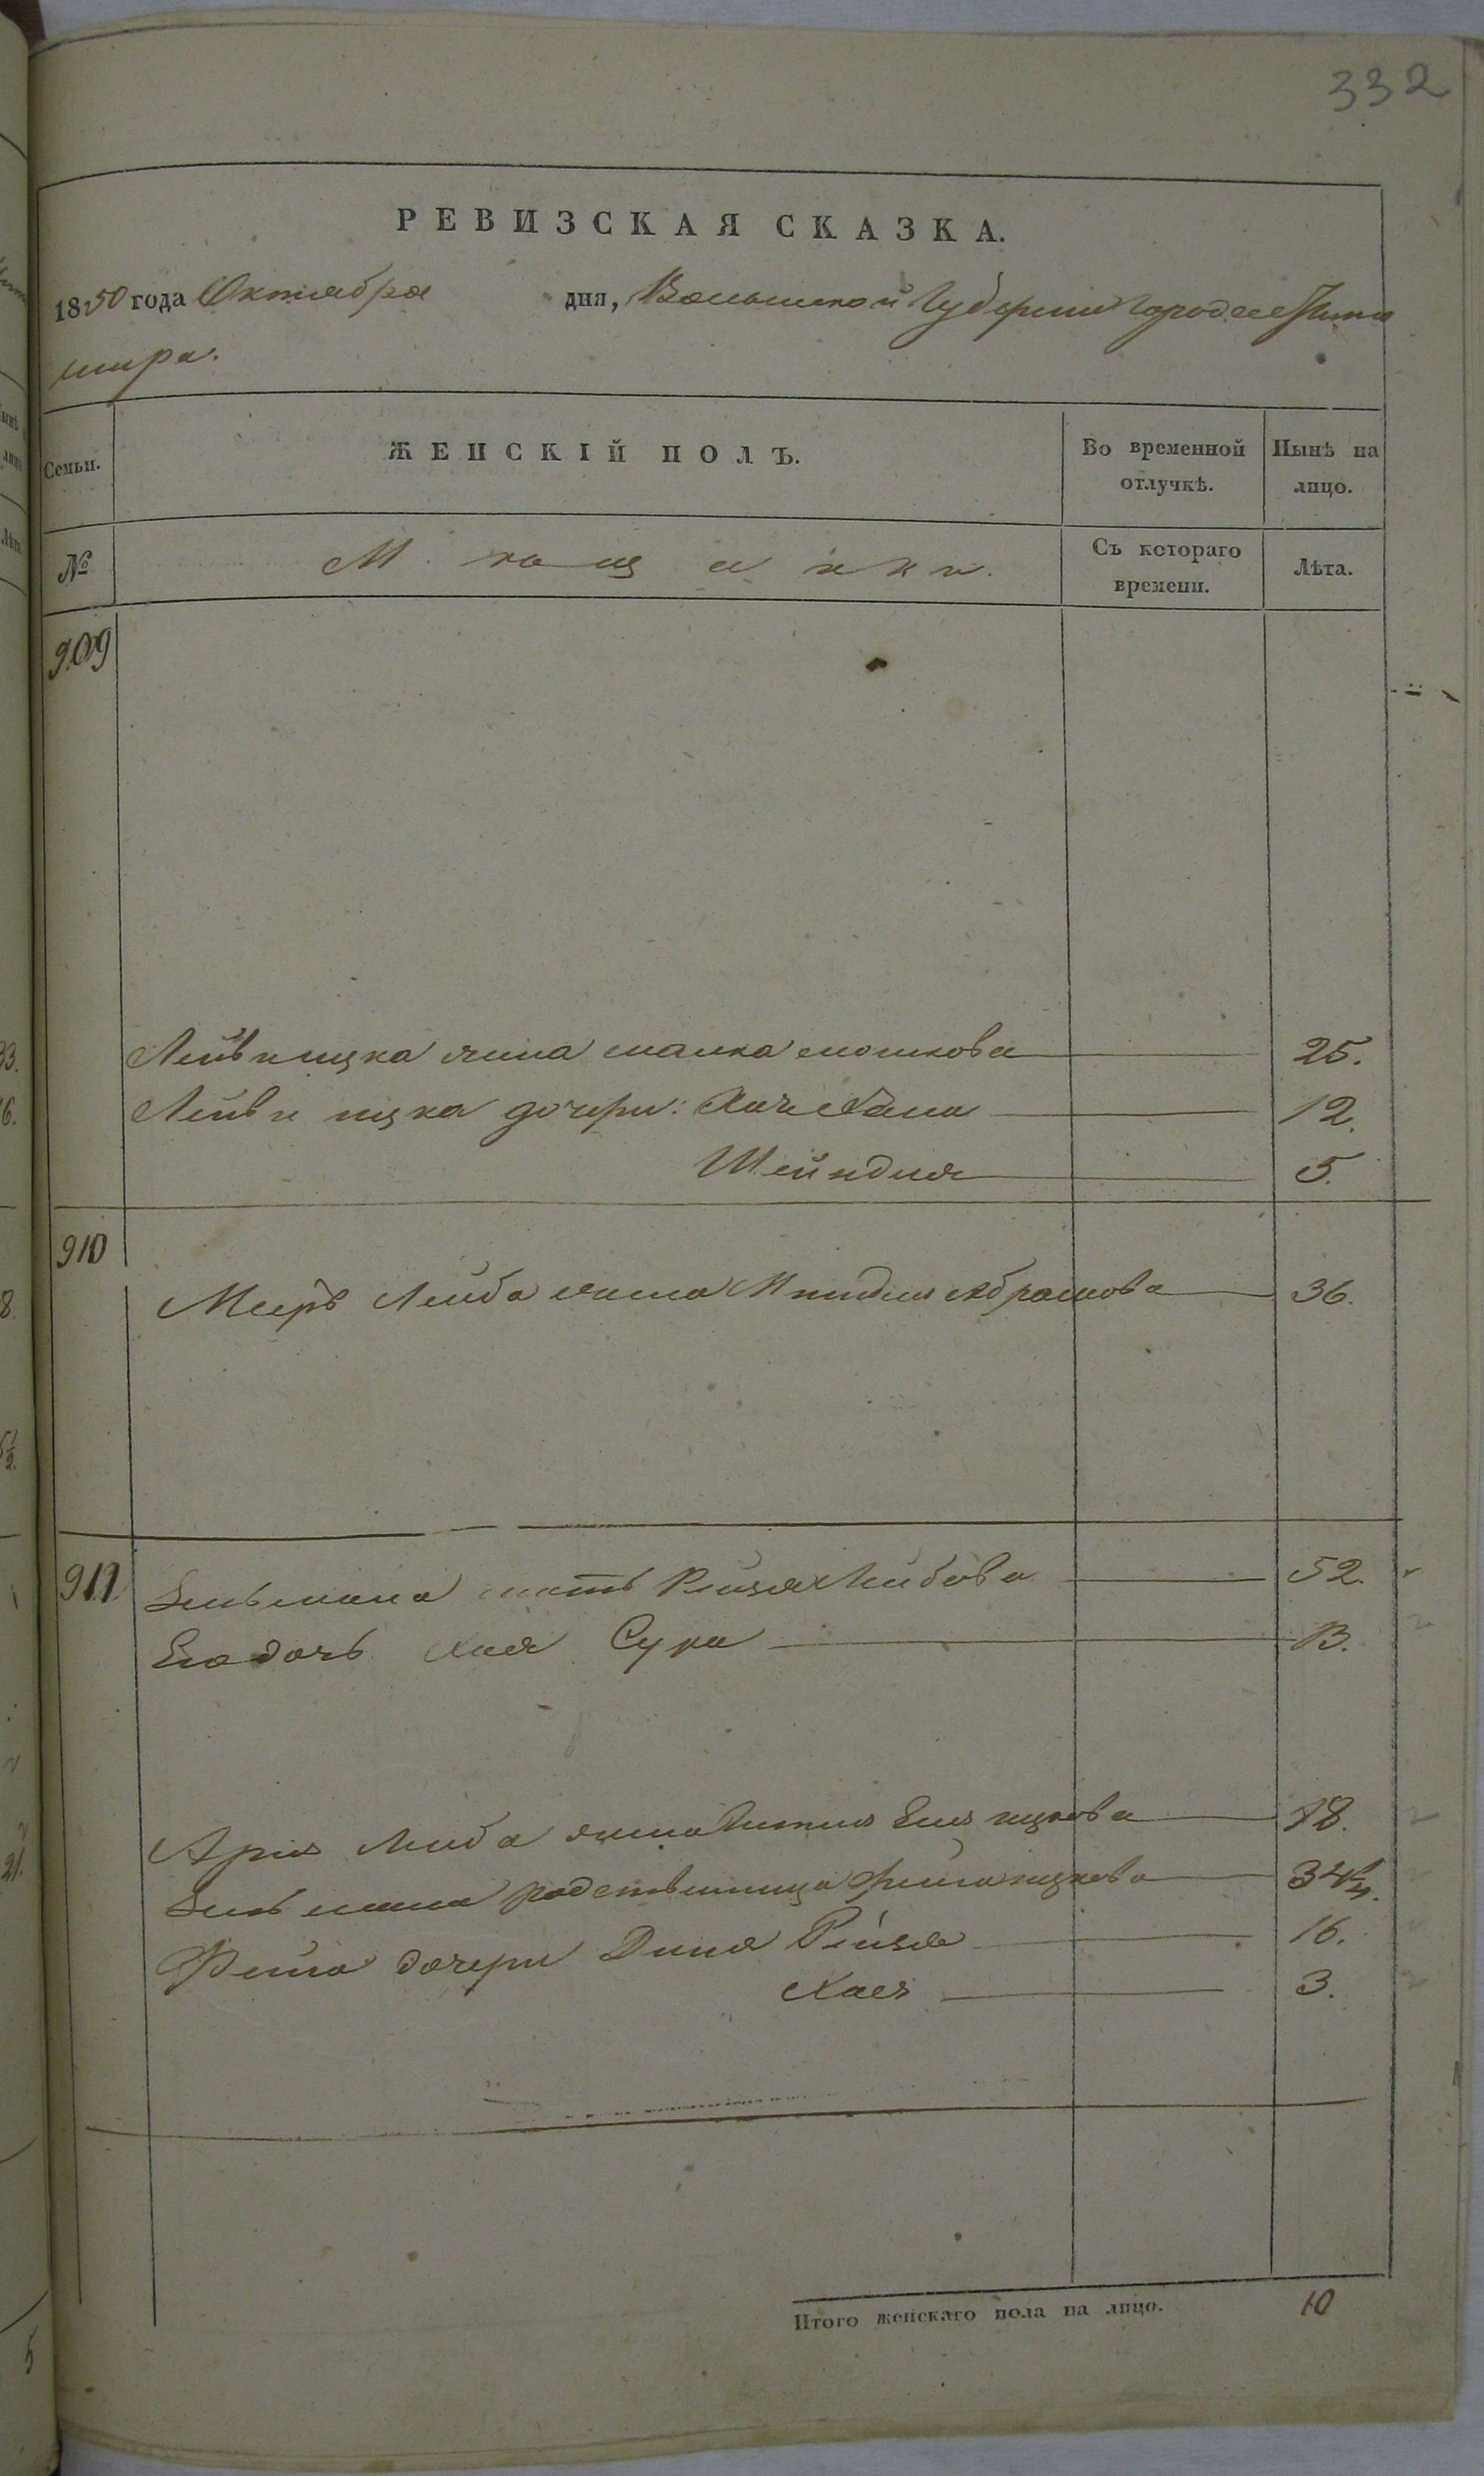 332
РЕВИЗСКАЯ СКАЗКА.
1850 года Октября дня, Волынской Губернии Города Жито
мира.
Семьи. ЖЕНСКІЙ ПОЛЪ. Во временной отлучкѣ. Нынѣ на лицо.
№ Мѣщанки. Съ котораго времени. Лѣта.
909
Лейб Ицка жена Малка Мошкова 25.
Лейб Ицка дочери: Хана 12.
Шейндля 5.
910
Меер Лейба жена Абрамова 36.
911 Зельмана мать Рейзя Лейбова 52.
Его дочь Хая Сура 13.
Ария Лейба жена Ицкова 18.
Зельмана родственница Фейга Ицкова 34
Фейги дочери Дина Рейзя 16.
Хая 3.
Итого женскаго пола на лицо. 10